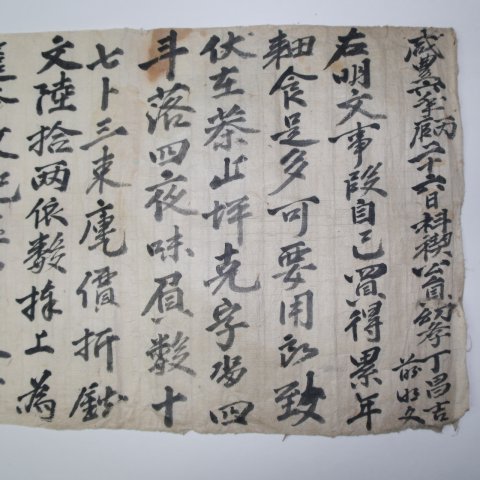 咸豊六年丙二十六日科稧公員幼學丁昌吉
前明文
右明文事段自己買得累年
耕食是多可要用所致
伏在茶山坪克字畓四
斗落四夜味負數十
七卜三束庫價折錢
文陸拾兩依數捧上爲